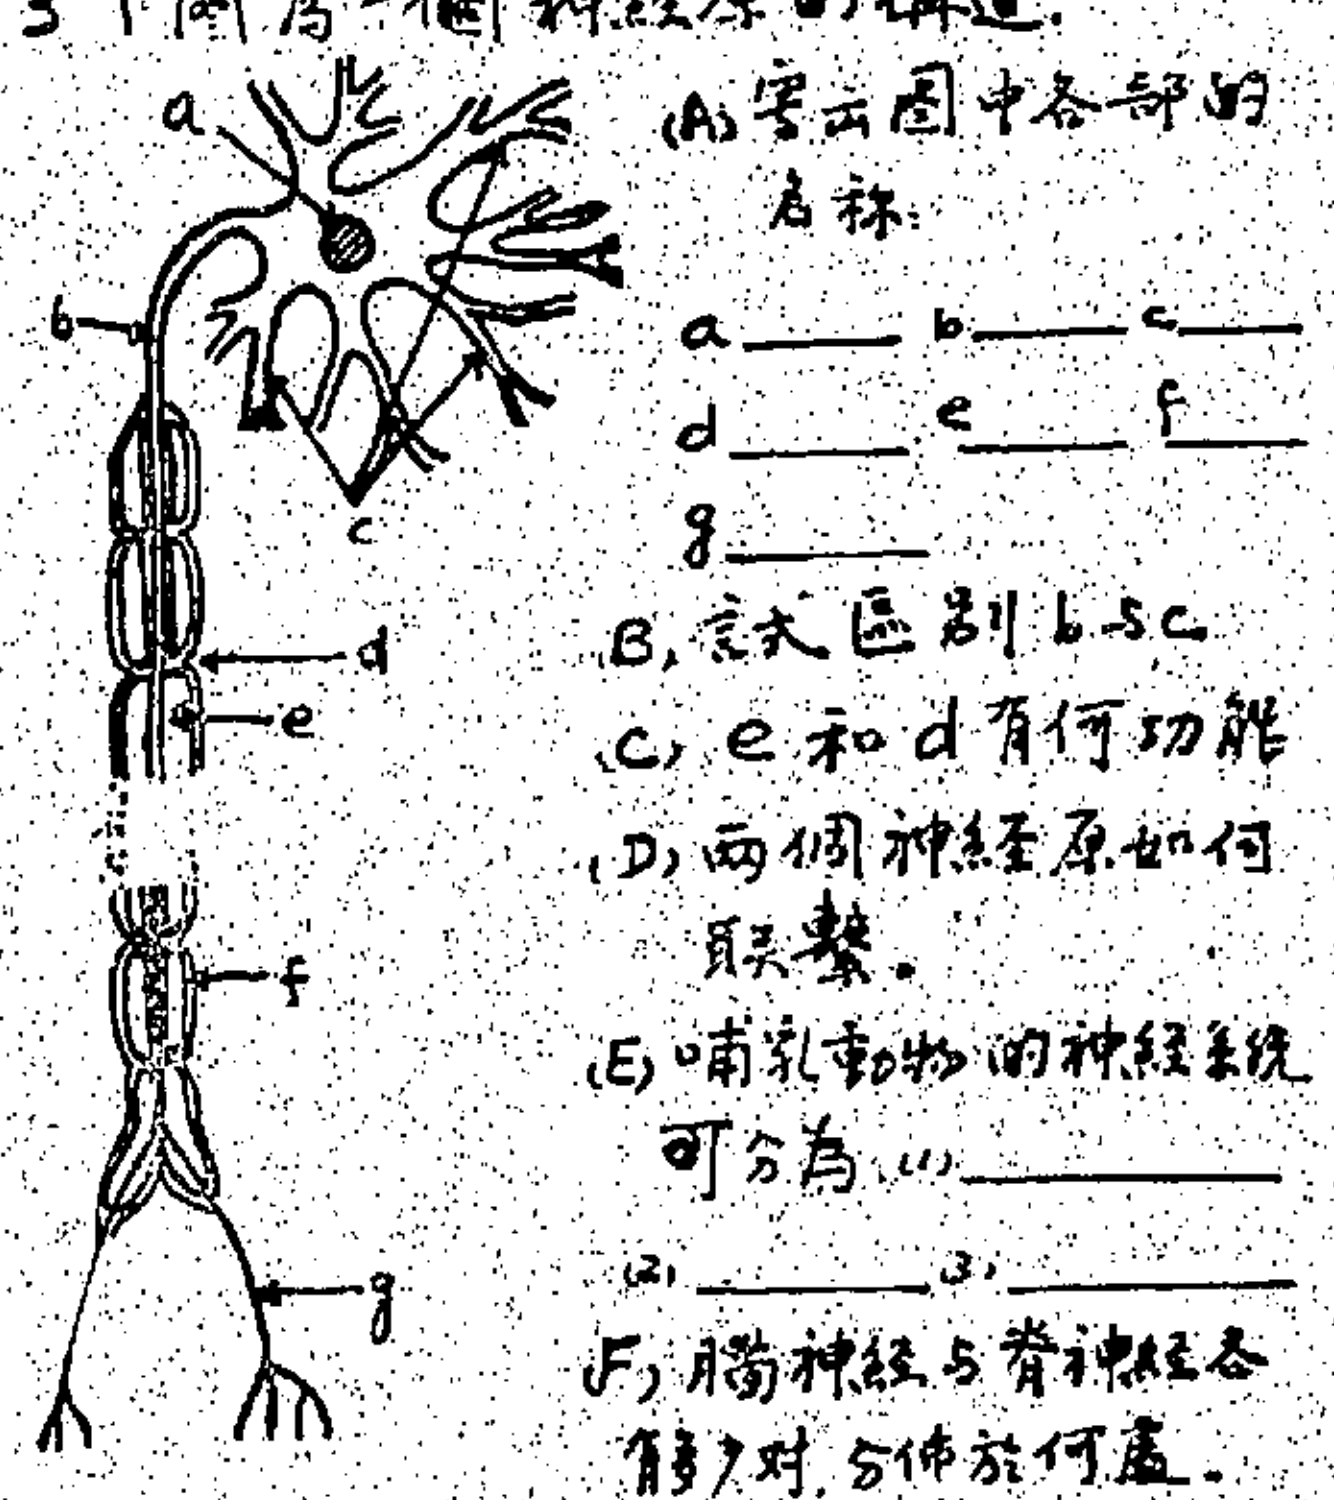 3 下圖為一個神経原的構造.
a
(A) 寫出圖中各部的
名称:
b
a b c
d e f
g
c
B, 試區別 b 与 c
d
(C) e 和 d 有何功能
e
(D) 兩個神経原如何
联繫。
f
(E) 哺乳動物的神経系統
可分為 (1)
(2) (3)
g
F) 腦神経与脊神経各
有多少对, 分佈於何處.